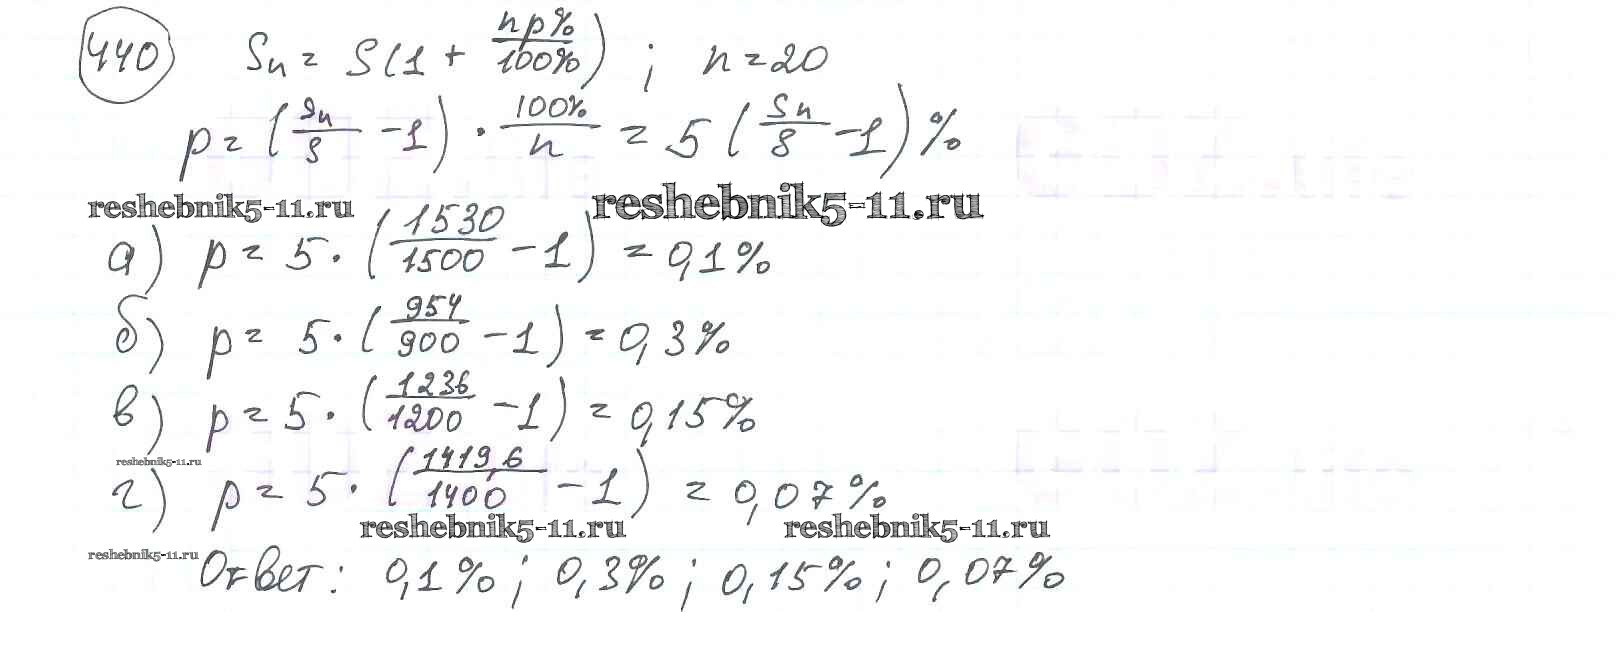 440 Sn = S(1 + np%/100%) ; n = 20
p = (Sn/S - 1) · 100%/n = 5 (Sn/S - 1) %
reshebnik5-11.ru reshebnik5-11.ru
а) p = 5 · (1530/1500 - 1) = 0,1%
б) p = 5 · (954/900 - 1) = 0,3%
в) p = 5 · (1236/1200 - 1) = 0,15%
reshebnik5-11.ru
г) p = 5 · (1419,6/1400 - 1) = 0,07%
reshebnik5-11.ru reshebnik5-11.ru
reshebnik5-11.ru
Ответ: 0,1%; 0,3%; 0,15%; 0,07%